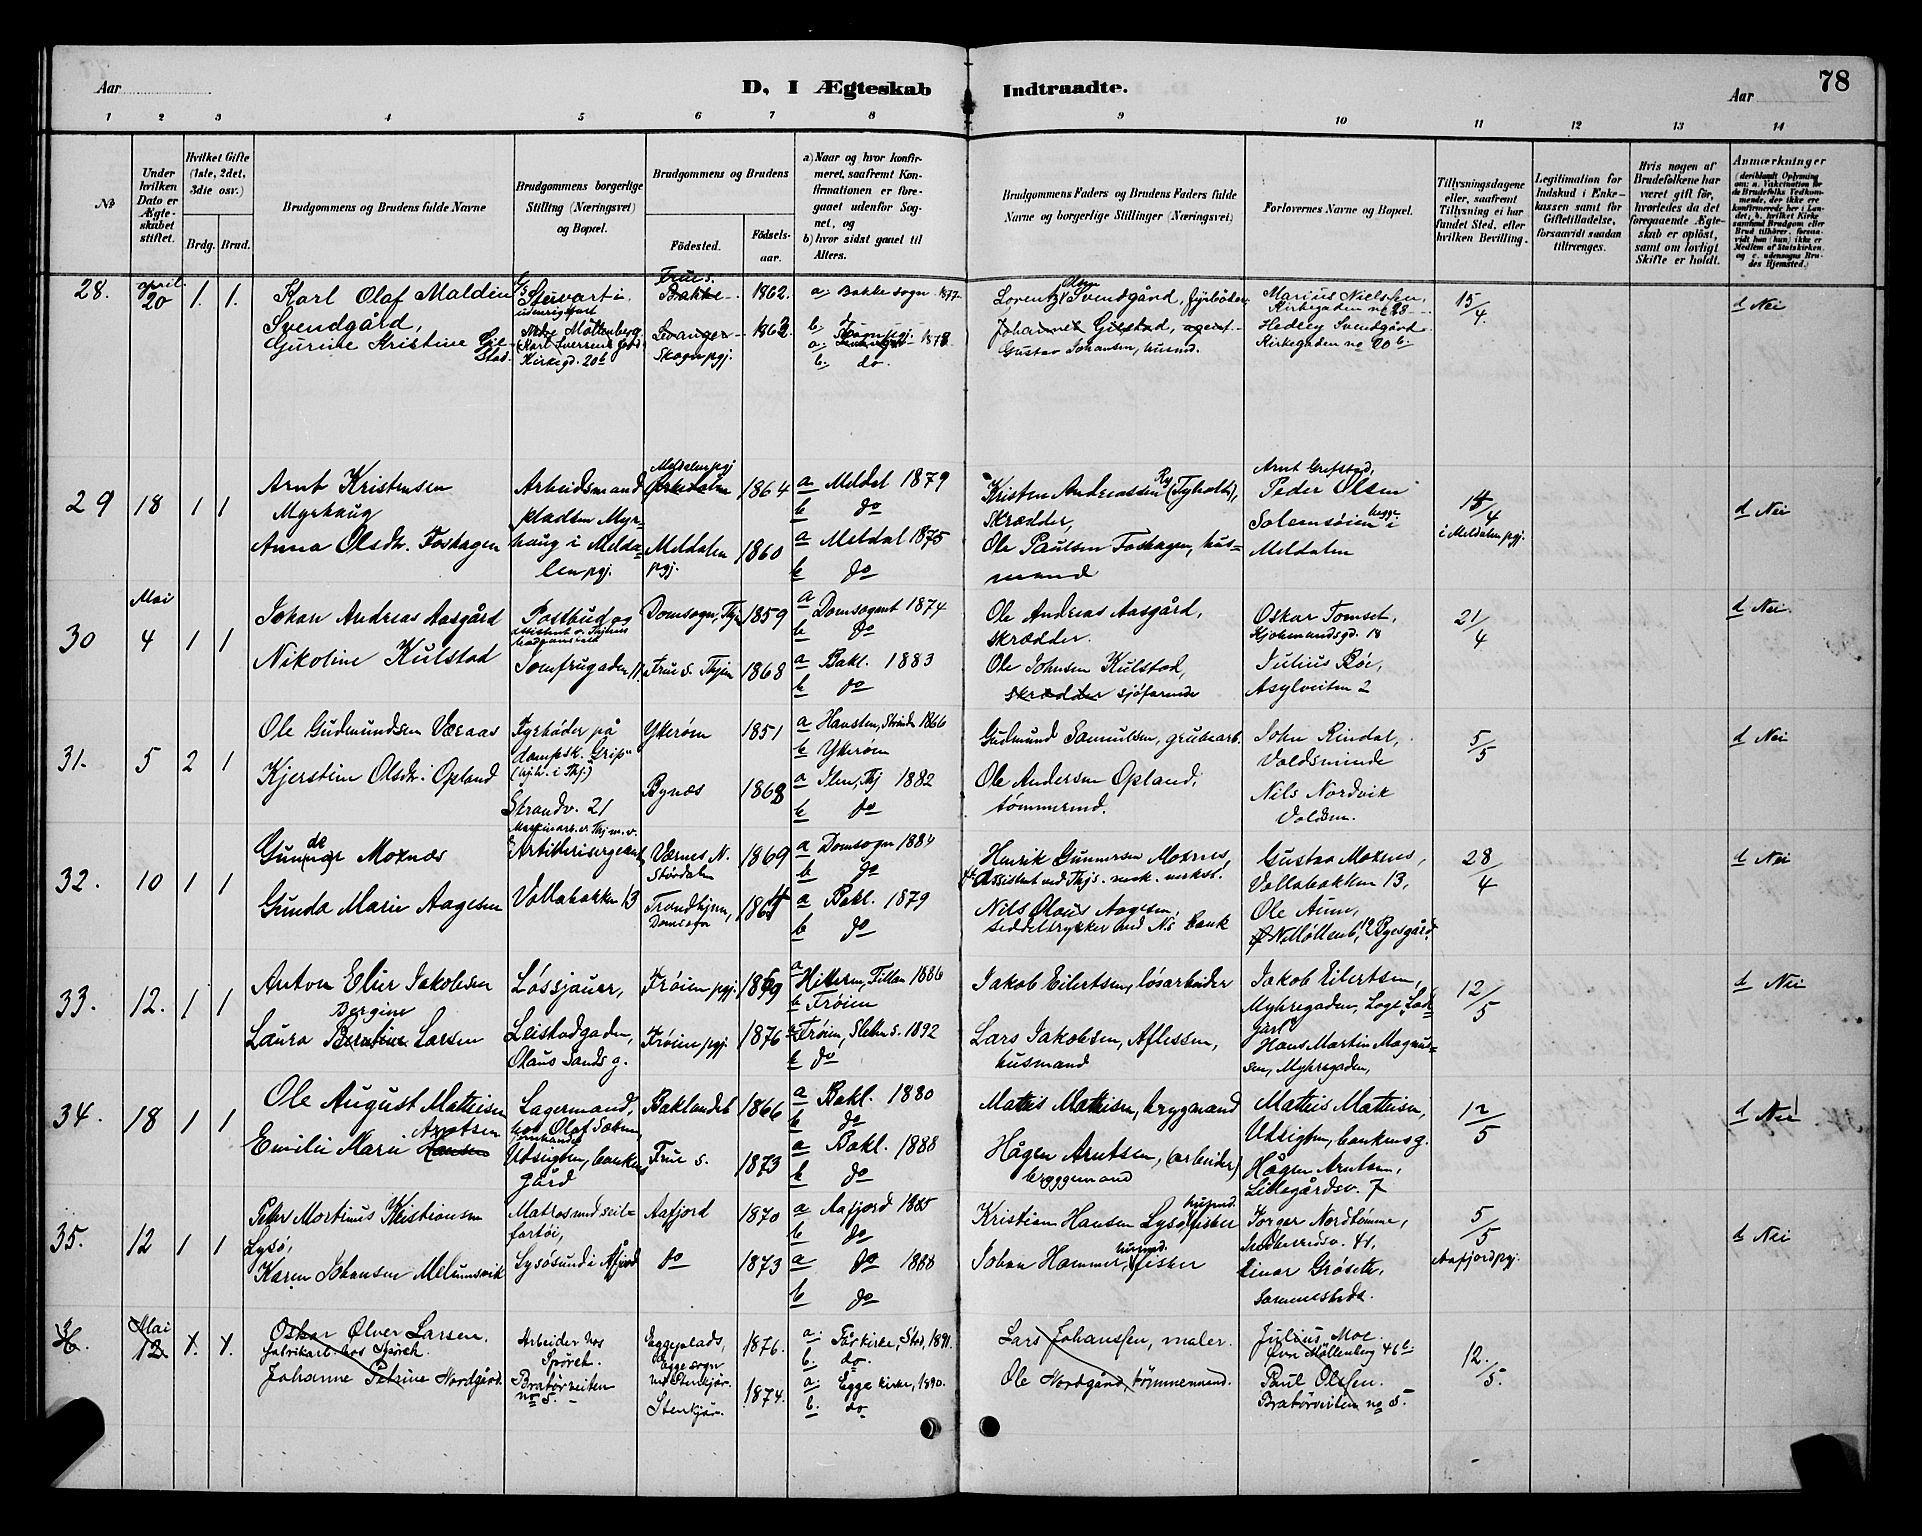 Aar
D, I Ægteskab Indtraadte.
Aar
78
1 2 3 4 5 6 7 8 9 10 11 12 13 14
№
Under hvilken Dato er Ægteskabet stiftet.
Hvilket Gifte (1ste, 2det, 3die osv.)
Brdg. Brud.
Brudgommens og Brudens fulde Navne
Brudgommens borgerlige Stilling (Næringsvei) og Bopæl.
Brudgommens og Brudens
Födested.
Födselsaar.
a) Naar og hvor konfirmeret, saafremt Konfirmationen er foregaaet udenfor Sognet, og
b) hvor sidst gaaet til Alters.
Brudgommens Faders og Brudens Faders fulde Navne og borgerlige Stillinger (Næringsvei)
Forlovernes Navne og Bopæl.
Tillysningsdagene eller, saafremt Tillysning ei har fundet Sted, efter hvilken Bevilling.
Legitimation for Indskud i Enkekassen samt for Giftetilladelse, forsaavidt saadan tiltrænges.
Hvis nogen af Brudefolkene har været gift för, hvorledes da det foregaaende Ægteskab er oplöst, samt om lovligt Skifte er holdt.
Anmærkninger
(deriblandt Oplysning om: a. Vakcination for de Brudefolks Vedkommende, der ikke ere konfirmerede her i Landet; b. hvilket Kirkesamfund Brudgom eller Brud tilhører, forsaavidt han (hun) ikke er Medlem af Statskirken, og c. udensogns Brudes Hjemsted.)
28. april 20 1. 1. Karl Olaf Maldin
Svendgård,
Gurine Kristine Gjelstad.
Stuvart i udenrigsfart
Nedre Möllenberg
Kirkegd. 20b
Frue s.
Bakke 1862.
Levanger
Skogn pgj. 1862.
a: Bakke sogn 1877
b: do
a: 1878
b: do.
Lorentz Svendgård, fyrbøder
Johannes Gjestad,
Gustav Johansen, husmd.
Marius Nielsen,
Kirkegaden no 28
Hedley Svendgård
Kirkegaden no 20 b.
15/4. d Nei
29 18 1 1 Arnt Kristensen
Myrhaug
Anna Olsdtr. Foshagen
Arbeidsmand
pladsen Myrhaug i Meldalen pgj.
Meldalen pgj
Orkedalen 1864
Meldalen pgj. 1860
a Meldal 1879
b do
a Meldal 1875
b do
Kristen Andreassen Ry (Tyholt),
skrædder,
Ole Paulsen Foshagen, husmand
Arnt Grefstad,
Peder Olsen
Solemsøien begge i
Meldalen
18/4
i Meldalen pgj. d Nei
Mai
30 4 1 1 Johan Andreas Aasgård
Nikoline Kulstad
Postbud og
Jomfrugaden 11
Domsogn, Thjm 1859
Frue s. Thjem 1868
a Domsognet 1874
b do
a Bakl. 1883
b do
Ole Andreas Aasgård,
skrædder.
Ole Johnsen Kulstad,
skrædder sjöfarende
Oskar Tomset,
Kjøbmandsgd. 18
Julius Röe,
Asylveiten 2
21/4 d Nei
31. 5 2 1 Ole Gudmundsen Væraas
Kjerstine Olsdtr. Opland
Fyrbøder på
dampsk. "Grip"
(hjh. i Thj.)
Strandv. 21
Ytterøen 1851
Bynæs 1868
a Havsten, Strinda 1866
b Ytterøen
a Ilen, Thj 1882
b do
Gudmund Samuelsen, grubearb.
Ole Andersen Opland,
tømmermd.
John Rindal,
Voldsminde
Nils Nordvik
Voldsm.
5/5 d Nei
32. 10 1 1 Gunnar Moxnæs
Gunda Marie Aagesen
Artillerisergeant
Vollabakken 13
Værnes N.
Stördalen 1869
Trondhjem,
Domsogn 1864
a Domsogn 1884
b do
a Bakl. 1879
b do
Henrik Gunnersen Moxnes,
Assistent ved Thjs. mek. verkst.
Nils Olaus Aagesen,
seddeltrykker ved N's Bank
Gustav Moxnes,
Vollabakken 13,
Ole Aune,
N Möllenb. 12 Byesgård
28/4 d Nei
33. 12. 1 1 Anton Elier Jakobsen
Laura Bergine Bentine Larsen
Løssjauer,
Leistadgaden,
Olaus Sands g.
Frøien pgj. 1869
Frøien pgj. 1876
a Hitteren, Fillan 1886
b Frøien
a Frøien, Sletten s. 1892
b do
Jakob Eilertsen, løsarbeider
Lars Jakobsen, Aflessen,
husmand
Jakob Eilertsen,
Myhregaden,
Hans Martin Magnussen, Myhregaden,
12/5 d Nei
34. 18 1 1 Ole August Mathisen
Emilie Marie Arntsen Hansen
Lagermand,
hos Olaf Sæther,
Udsigten, bankens
gård
Baklandet 1866
Frue s. 1873
a Bakl. 1880
b do
a Bakl. 1888
b do
Mathis Mathisen, brygmand
Hågen Arntsen, (arbeider)
bryggemand
Mathis Mathisen,
Udsigten, bankens g.
Hågen Arntsen,
Lillegårdsv. 7
12/5 d Nei
35. 12 1 1 Peter Mortinus Kristiansen
Lysö,
Karen Johansen Melumsvik
Matros med seilfartøi,
Lysösund i Åfjord
Aafjord 1870
do 1873
a Aafjord 1885
b do
a do 1888
b do
Kristian Hansen Lysö, husmd. fisker
Johan Hammer, husmd. fisker
Jörger Nordtömme,
41,
Einar Gröseth,
Sammesteds.
5/5
Aafjord pgj. d Nei
36. Mai 12 1. 1. Oskar Ølver Larsen.
fabrikarb. hos Spörck.
Johanne Petrine Nordgård.
Arbeider hos
Spörck.
Bratörveiten
no 5.
Eggeplads,
Egge sogn
ved Stenkjær. 1876.
Stenkjær. 1874.
a: kirke, Stod, 1891.
b: do.
a: Egge kirke, 1890.
b. do
Lars Johanssen, maler.
Ole Nordgård, tömmermand.
Julius Moe.
Övre Möllenberg 46
Paul Olssen.
Bratörveiten no 5.
12./5.